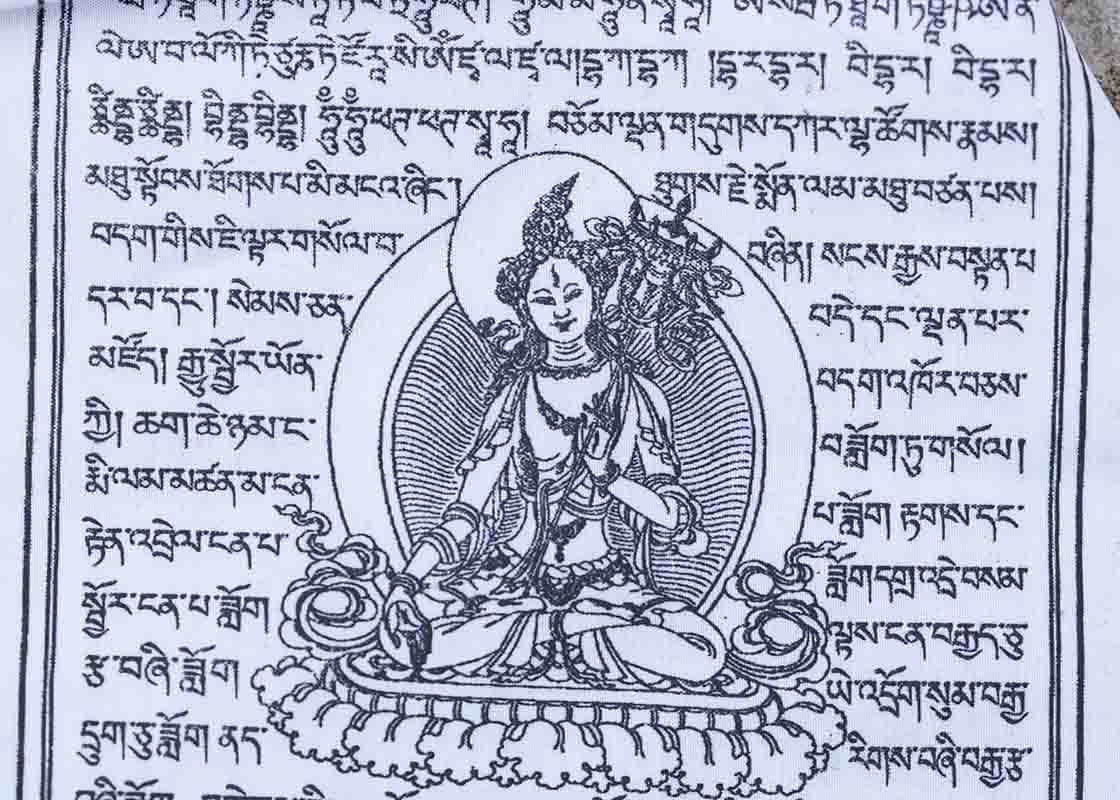 ལེ་ཨ་བ་ལོ་ཀི་ཏེ་ །དྷ་ར་དྷ་ར། བི་དྷ་ར། བི་དྷ་ར།
ཚིནྡྷ་ཚིནྡྷ། བྷིནྡྷ་བྷིནྡྷ། ཧཱུྃ་ཧཱུྃ་ཕཊ་ཕཊ་སྭཱ་ཧཱ། བཅོམ་ལྡན་གདུགས་དཀར་ལྷ་ཚོགས་རྣམས།
མཐུ་སྟོབས་ཐོགས་པ་མི་མངའ་ཞིང་། ཐུགས་རྗེ་སྨོན་ལམ་མཐུ་བཙན་པས།
བདག་གིས་ཇི་ལྟར་གསོལ་བ་ བཞིན། སངས་རྒྱས་བསྟན་པ་
དར་བ་དང་། སེམས་ཅན་ བདེ་དང་ལྡན་པར་
མཛོད། རྒྱུ་སྦྱོར་ཡོན་ བདག་འཁོར་བཅས་
ཀྱི། ཆག་ཆེ་ཉམ་ང་ བཟློག་ཏུ་གསོལ།
རྨི་ལམ་མཚན་མ་ངན་ པ་ཟློག རྟགས་དང་
རྟེན་འབྲེལ་ངན་པ་ ཟློག དགྲ་འདྲེ་བསམ་
སྦྱོར་ངན་པ་ཟློག ལྟས་ངན་བརྒྱད་ཅུ་
རྩ་བཞི་ཟློག ཡེ་འདྲོག་སུམ་བརྒྱ་
དྲུག་ཅུ་ཟློག ནད་ རིགས་བཞི་བརྒྱ་རྩ་